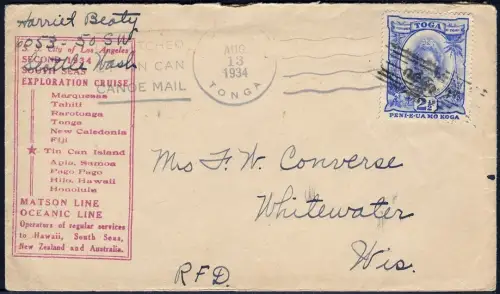 Harriet Beaty
6053-50 SW
Seattle Wash
City of Los Angeles
SECOND 1934
SOUTH SEAS
EXPLORATION CRUISE
Marquesas
Tahiti
Rarotonga
Tonga
New Caledonia
Fiji
★ Tin Can Island
Apia, Samoa
Pago Pago
Hilo, Hawaii
Honolulu
MATSON LINE
OCEANIC LINE
Operators of regular services
to Hawaii, South Seas,
New Zealand and Australia.
TIN CAN
CANOE MAIL
AUG
13
1934
TONGA
TOGA
2½
PENI-E-UA MO KOGA
Mrs F. W. Converse
Whitewater
Wis.
RFD.